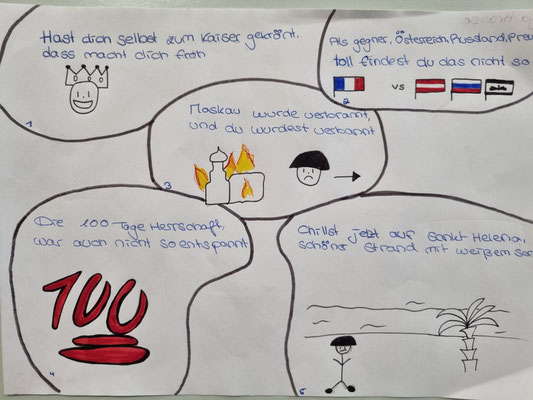 Hast dich selbst zum Kaiser gekrönt,
dass macht dich froh
1
Als gegner, Österreich, Russland,
toll findest du das nicht so
vs
2
Moskau wurde verbrannt,
und du wurdest verbannt
3
Die 100 Tage Herrschaft,
war auch nicht so entspannt
100
4
Chillst jetzt auf Sankt Helena,
schöner Strand mit weißem
5